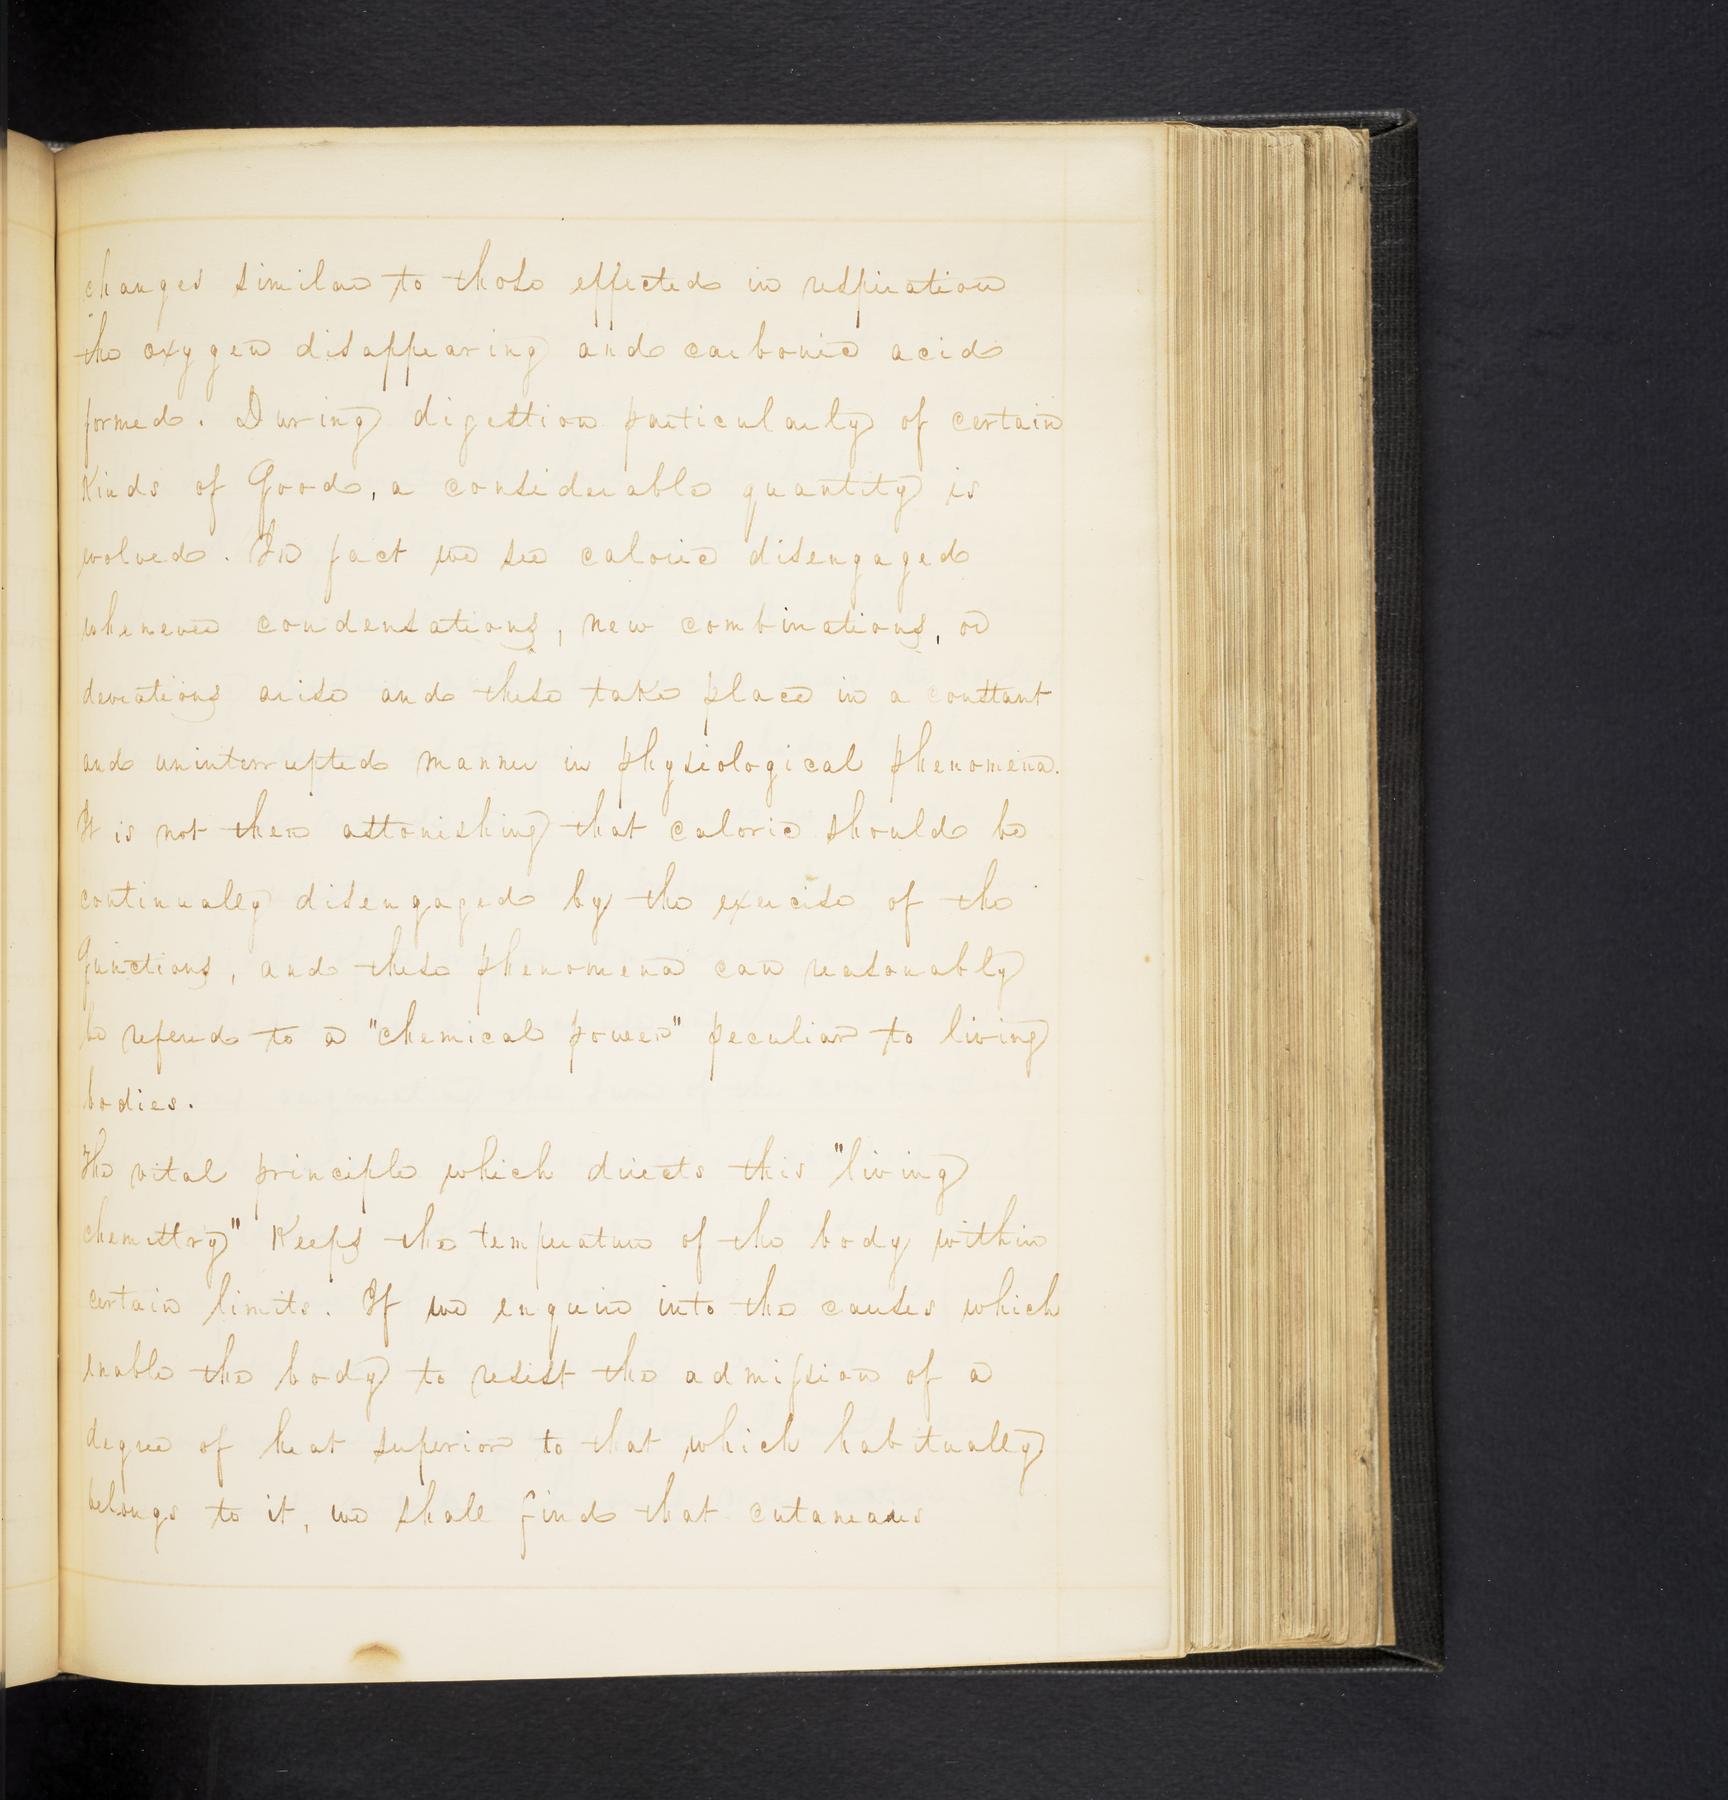 changes similar to those effected in respiration
the oxygen disappearing and carbonic acid
formed. During digestion particularly of certain
kinds of food, a considerable quantity is
evolved. In fact we see caloric disengaged
whenever condensations, new combinations, or
deviations arise and these take place in a constant
and uninterrupted manner in physiological phenomena.
It is not then astonishing that caloric should be
continually disengaged by the exercise of the
functions, and these phenomena can reasonably
be refered to a "chemical power" peculiar to living
bodies.
The vital principle which directs this "living
chemistry" keeps the temperature of the body within
certain limits. If we enquire into the causes which
enable the body to resist the admission of a
degree of heat superior to that which habitually
belongs to it, we shall find that cutaneous